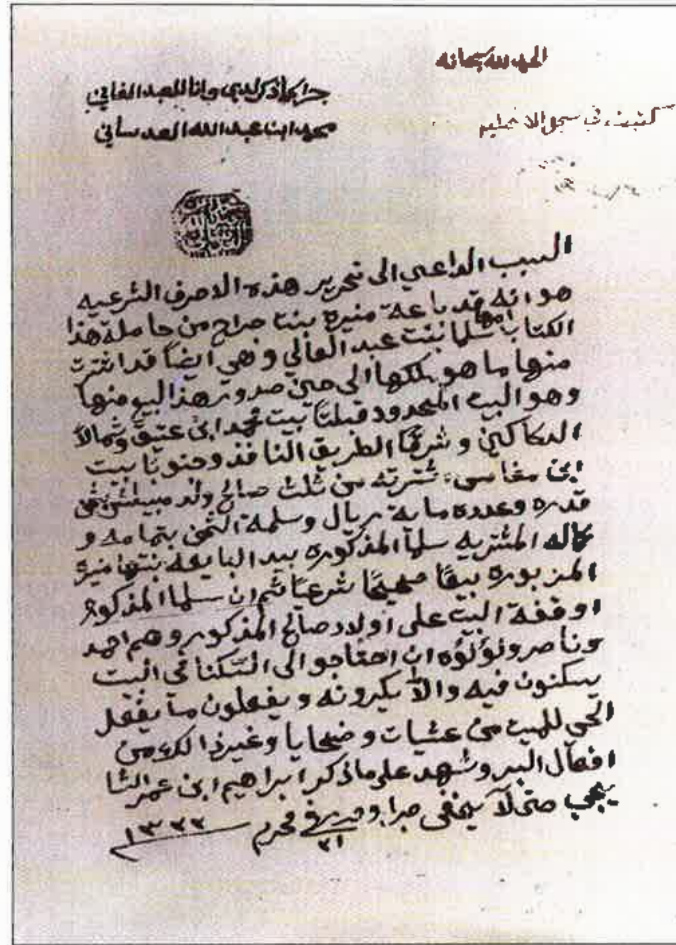 الحمد لله سبحانه
جرا ما ذكر لدي وانا العبد الفاني
محمد ابن عبد الله العدساني
كتبت في سجل الا
السبب الداعي الى تحرير هذه الاحرف الشرعيه
هو انه قد باعة منيره بنت صراح من حاملة هذا
الكتاب امها سلما بنت عبد العالي وهي ايضاً قد اشترت
منها ما هو بملكها الى حين صدور هذا البيع منها
وهو البيت المحدود قبلتاً بيت محمد ابن عتيق وشمالاً
الدكاكين وشرقاً الطريق النافذ وجنوباً بيت
ابن مغامس شترته من ثلث صالح ولد بثمن
قدره وعدده ماية ريال وسلمة الثمن بتمامه و
كماله المشتريه سلما المذكوره بيد البايعه بنتها منيرة
المزبوره بيعاً صحيحاً شرعياً ثم ان سلما المذكوره
اوقفة البيت على اولاد صالح المذكور وهم احمد
وناصر ولؤلؤه ان احتاجو الى السكنا في البيت
يسكنون فيه والا يكرونه ويفعلون ما يفعل
الحي للميت من عشيات وضحايا وغير ذالك من
افعال البر وشهد على ما ذكر ابراهيم ابن عمر الشا
يجي حتى لا يخفى جرا وحرر في ٢١ محرم ١٣٢٢